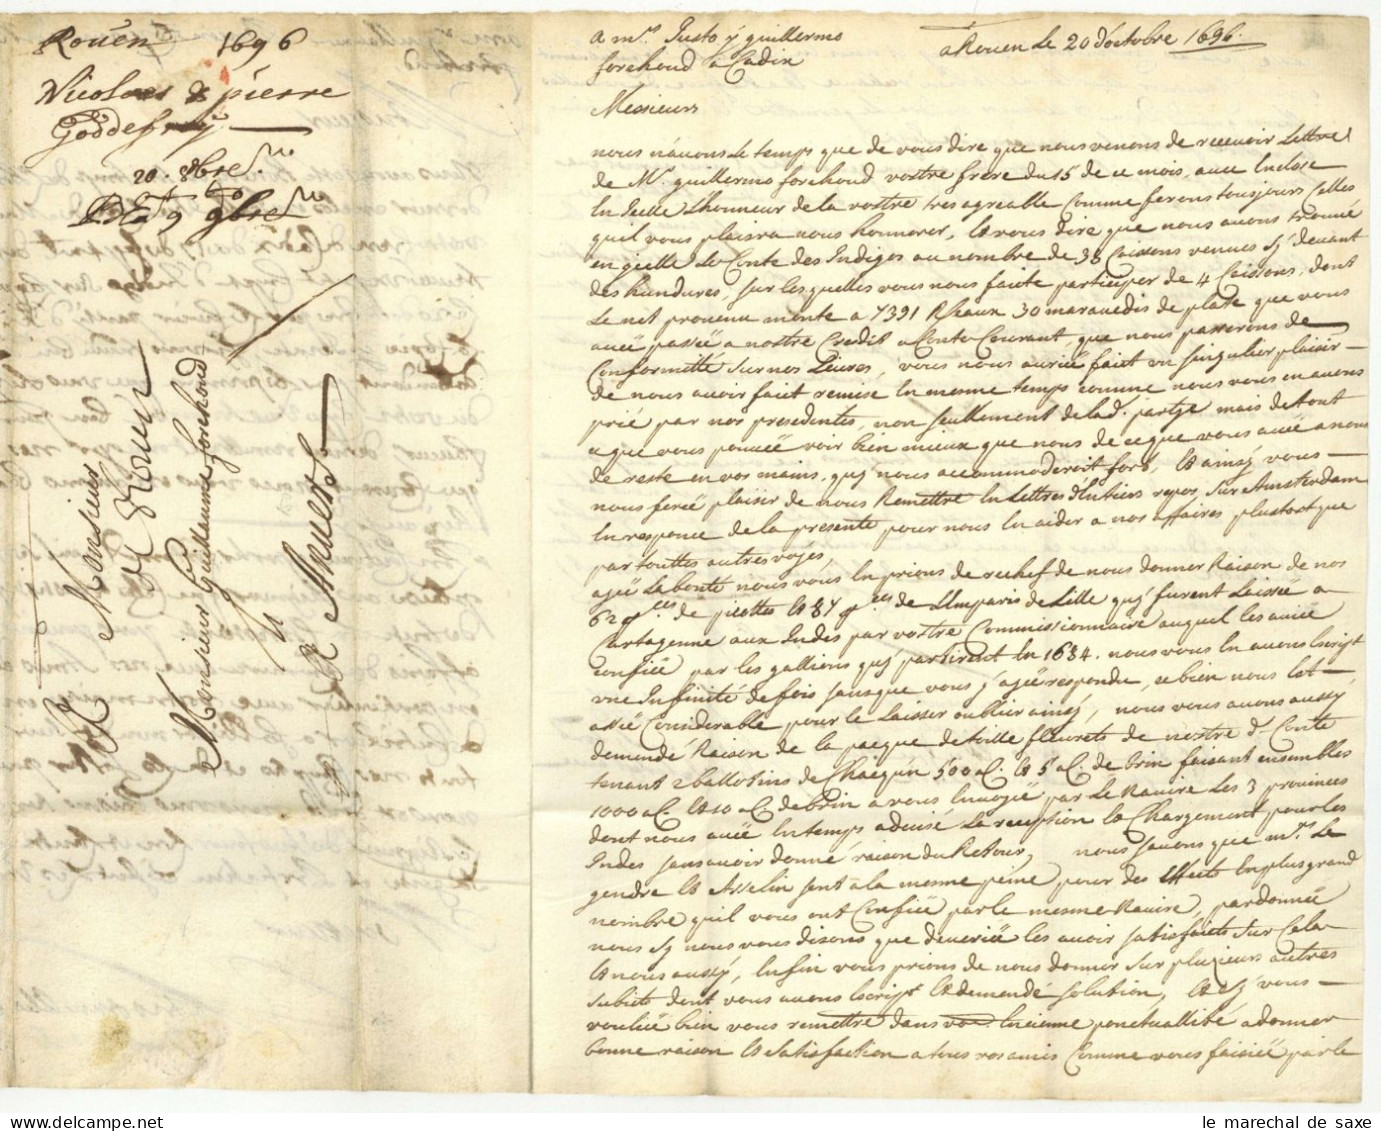 Rouen 1696
Nicolaes & pierre
Goddefroy
20. 8bre
9 9bre
Monsieur
Monsieur Guillaume forchoud
A Anvers
A Mrs. Justo y guillermo
forchoud a Cadix
a Roüen Le 20 d'octobre 1696.
Messieurs
nous n'auons Le temps que de vous dire que nous venons de receuoir Lettre
de Mr. guillermo forchoud vostre frere du 15 de ce mois, auec Incluse
En Icelle L'honneur de la vostre tres agreable Comme ferons tousjours Celles
quil vous plaira nous honnorer, et vous dire que nous auons trouué
en icelle Le Conte des Indigos au nombre de 38 Caissons venues Cy deuant
des hondures, sur lesquelles vous nous faite participer de 4 Caissons, dont
Le net prouenu monte a 7391 Rheaux 30 marauedis de plate que vous
aueé passée a nostre Credit a Conto Courant, que nous passerons de
Conformitté sur nos Liures, vous nous auriée faict vn singulier plaisir
de nous auoir faict remise En mesme temps comme nous vous en auons
prié par nos precedentes, non seullement de lad. partye mais de tout
ce que vous pouuéé voir bien mieux que nous de ce que vous aueé a nous
de reste en vos mains, quy nous accommoderoit fort, et ainsy vous
nous ferié plaisir de nous Remettre En Lettres d'Entiers repos, sur Amsterdam
En responce de la presente pour nous En aider a nos affaires plustost que
par touttes autres voyes,
ayé La bonté nous vous En prions de rechef de nous donner Raison de nos
62 ps. de picottes et 84 ps. de Lamparis de Lille quy furent Laissée a
Cartagenne aux Indes par vostre Commissionnaire auquel les auiée
Confiée par les gallions quy partirent En 1684. nous vous En auons Escript
vne Infinité de fois sans que vous y ayé respondu, ce bien nous Est
assé Considerable pour le Laisser oublier ainsy, nous vous auons aussy
demandé Raison de la pacque de toille fleurets de nostre d. Conte
tenant 2 ballotins de Chacqun 500 al. et 5 al. de brin faisant ensembles
1000 al. et 10 al. de brin a vous Enuoyé par Le Nauire Les 3 prouinces
dont nous aueé En temps aduisé La reception et Chargement pour les
Indes sans auoir donné raison du Retour, nous sauons que Mrs. Le
gendre et Asselin sont a la mesme peine pour des effects En plus grand
nombre quil vous ont Confiée par le mesme Nauire, pardonnée
nous sy nous vous disons que deueriée les auoir satisfaits sur Cela
et nous aussy, Enfin vous prions de nous donner sur plusieurs autres
subiets dont vous auons Escript et demandé solution, et sy vous
vouliée bien vous remettre dans vo Encienne ponctuallité a donner
bonne raison et Satisfaction a tous vos amis Comme vous faisiée par le
le marechal de saxe